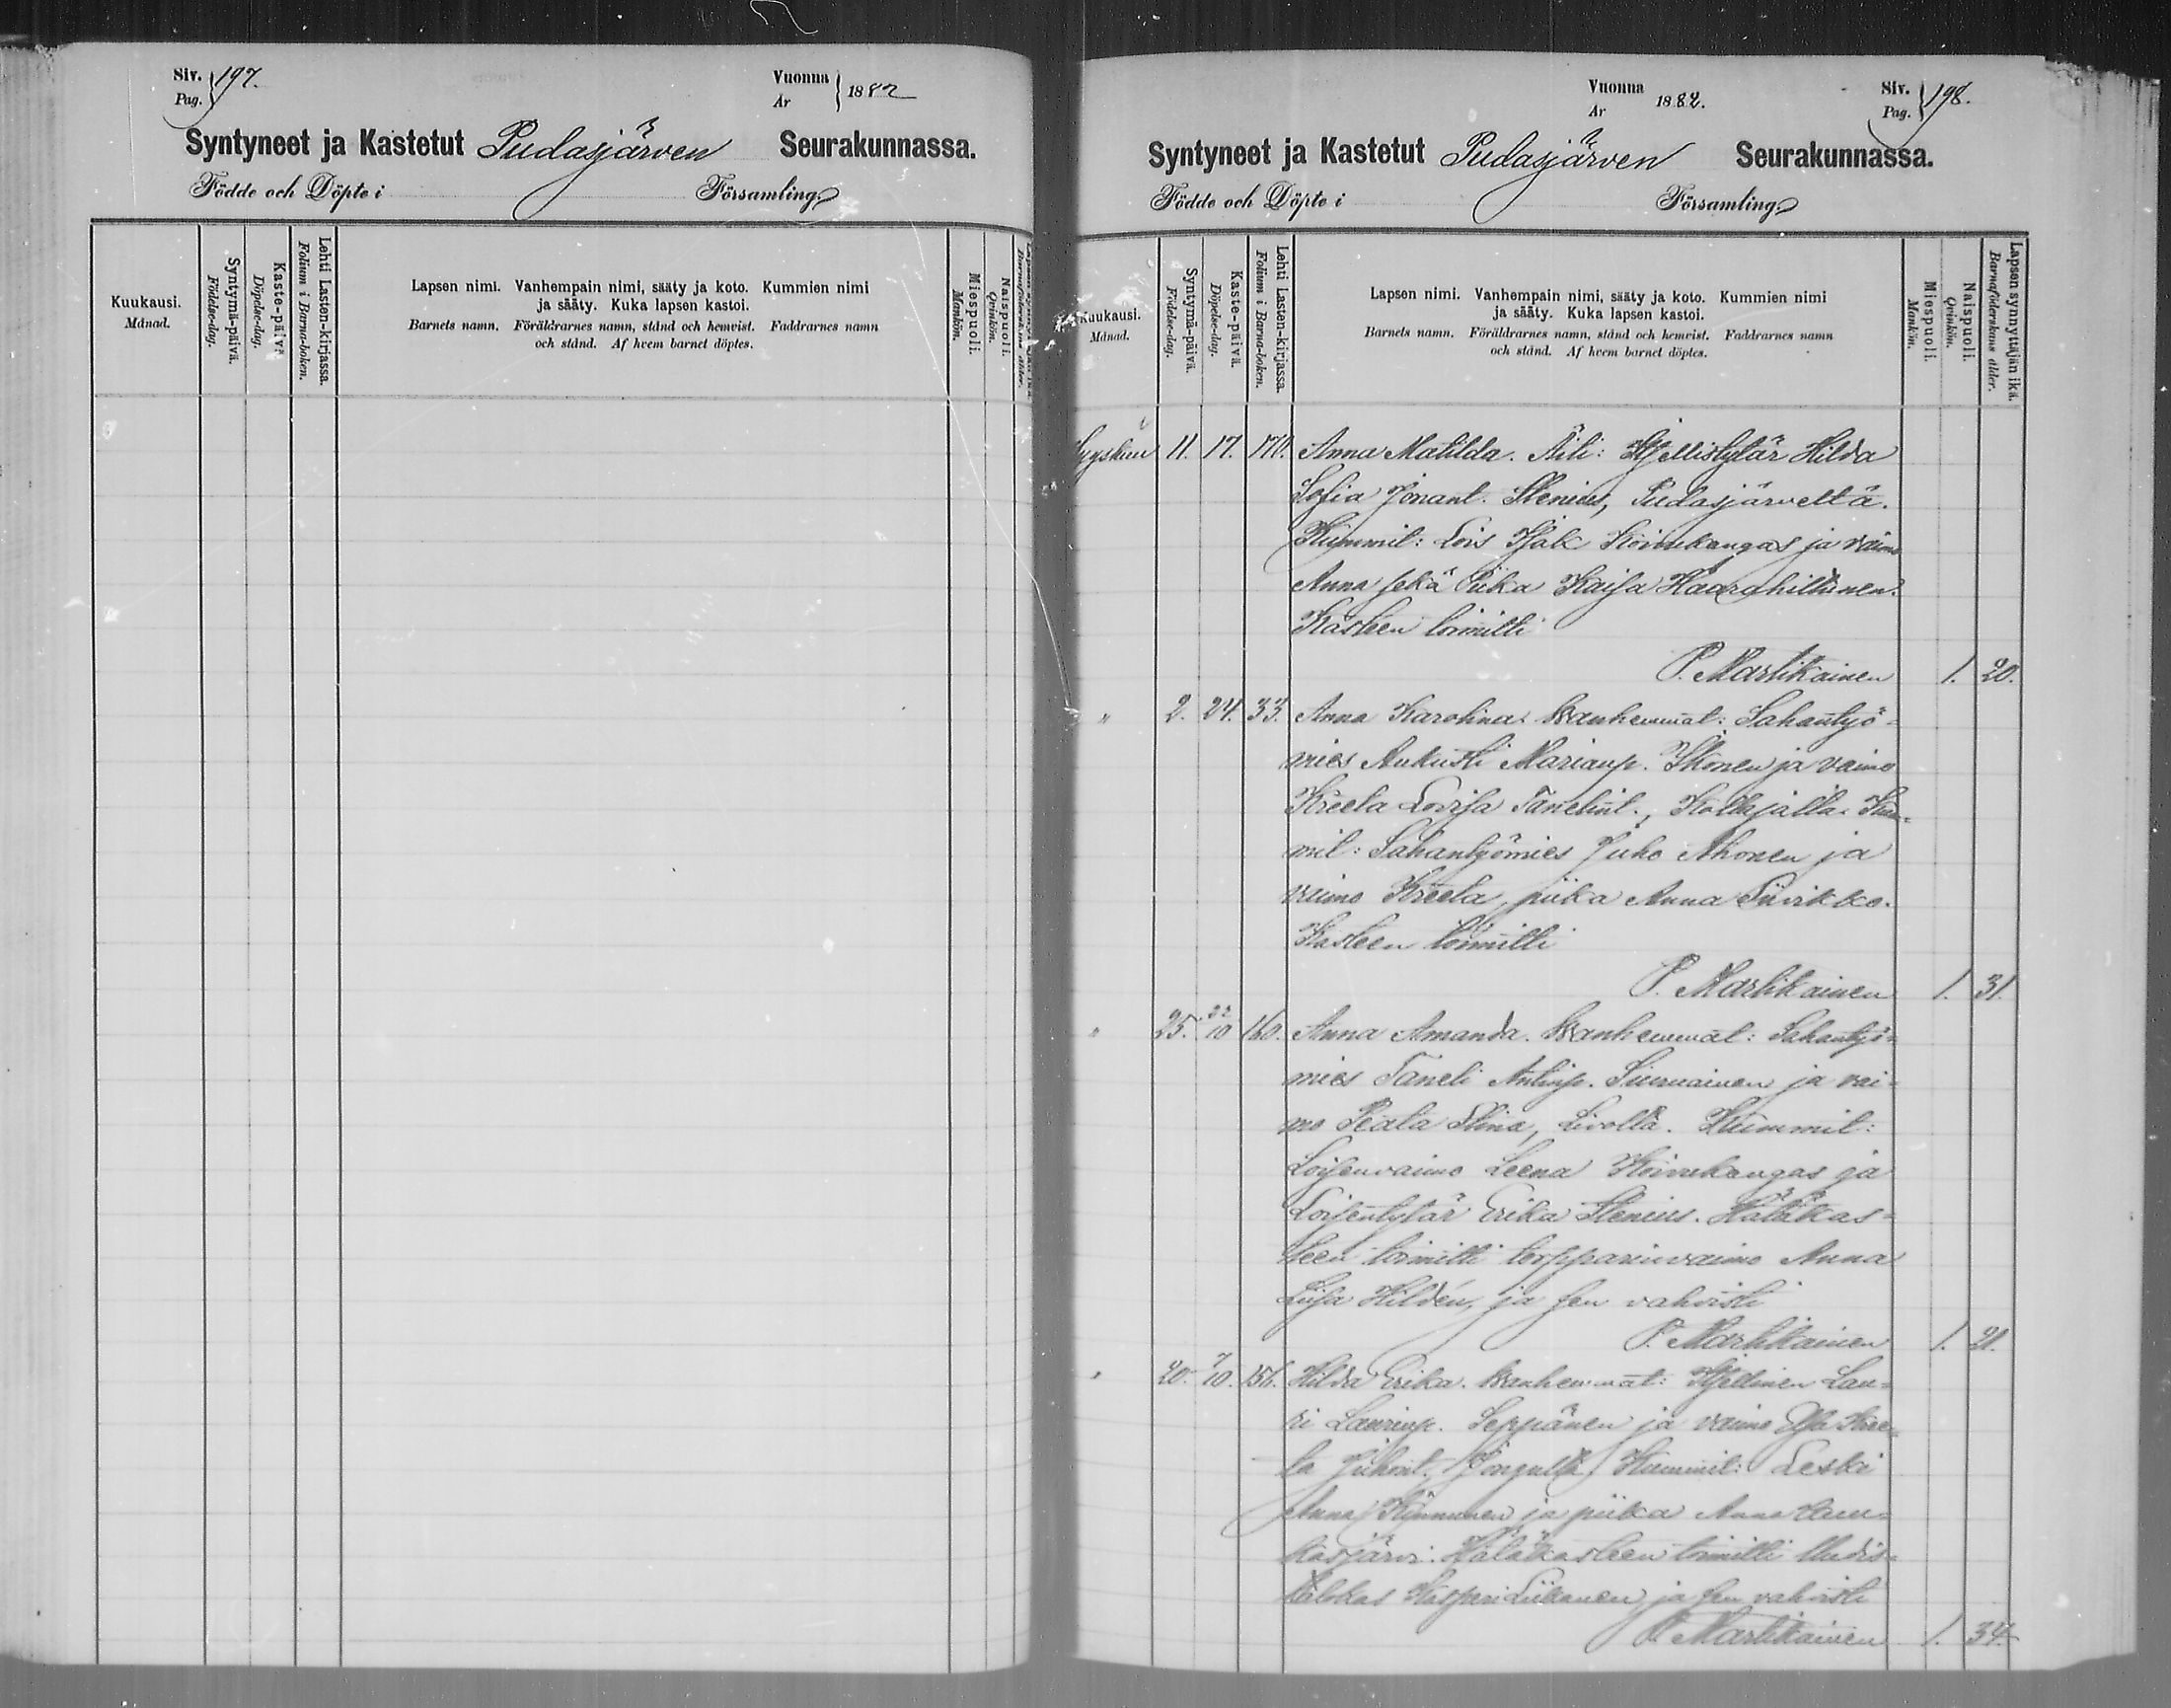 Siv. 197.
Pag.
Vuonna
År 1882
Syntyneet ja Kastetut Pudasjärven Seurakunnassa.
Födde och Döpte i Församling.
Kuukausi.
Månad.
Syntymä-päivä.
Födelse-dag.
Kaste-päivä
Döpelse-dag.
Lehti Lasten-kirjassa.
Folium i Barna-boken.
Lapsen nimi. Vanhempain nimi, sääty ja koto. Kummien nimi
ja sääty. Kuka lapsen kastoi.
Barnets namn. Föräldrarnes namn, stånd och hemvist. Faddrarnes namn
och stånd. Af hvem barnet döptes.
Miespuoli.
Mankön.
Naispuoli.
Qvinkön.
Vuonna
År 1882.
Siv. 198.
Pag.
Syntyneet ja Kastetut Pudasjärven Seurakunnassa.
Födde och Döpte i Församling.
Kuukausi.
Månad.
Syntymä-päivä.
Födelse-dag.
Kaste-päivä.
Döpelse-dag.
Lehti Lasten-kirjassa.
Folium i Barna-boken.
Lapsen nimi. Vanhempain nimi, sääty ja koto. Kummien nimi
ja sääty. Kuka lapsen kastoi.
Barnets namn. Föräldrarnes namn, stånd och hemvist. Faddrarnes namn
och stånd. Af hvem barnet döptes.
Miespuoli.
Mankön.
Naispuoli.
Qvinkön.
Lapsen synnyttäjän ikä.
Barnaföderskans ålder.
Syyskuu 11. 17. 170. Anna Matilda. Äiti: Itjellistytär Hilda
Sofia Jonant. Stenius, Pudasjärveltä.
Kummit: Lois Isak Koivukangas ja vaimo
Anna sekä Piika Kaisa Haarahiltunen.
Kasteen toimitti
P. Martikainen 1. 20.
" 2. 24. 33. Anna Karolina. Wanhemmat: Sahantyö-
mies Aukusti Marianp. Ikonen ja vaimo
Kreeta Lovisa Tanelint., Kollajalla. Kum-
mit: Sahantyömies Juho Ahonen ja
vaimo Kreeta, piika Anna Siivikko.
Kasteen toimitti
P. Martikainen 1. 31.
" 25. 22/10 160. Anna Amanda. Wanhemmat: Sahantyö-
mies Taneli Antinp. Siuruainen ja vai-
mo Peata Stina, Livolla. Kummit:
Loisenvaimo Leena Koivukangas ja
Loisentytär Erika Stenius. Hätäkas-
teen toimitti torpparinvaimo Anna
Liisa Hildén, ja sen vahvisti
P. Martikainen 1. 21.
" 20. 7/10. 156. Hilda Erika. Wanhemmat: Itjellinen Lau-
ri Laurinp. Seppänen ja vaimo Elsa Kree-
ta Juhont., Jongulla. Kummit: Leski
Anna Kynnunen ja piika Anna
kasjärvi. Hätäkasteen toimitti Uudis-
talokas Kasperi Liikanen, ja sen vahvisti
P. Martikainen 1. 34.